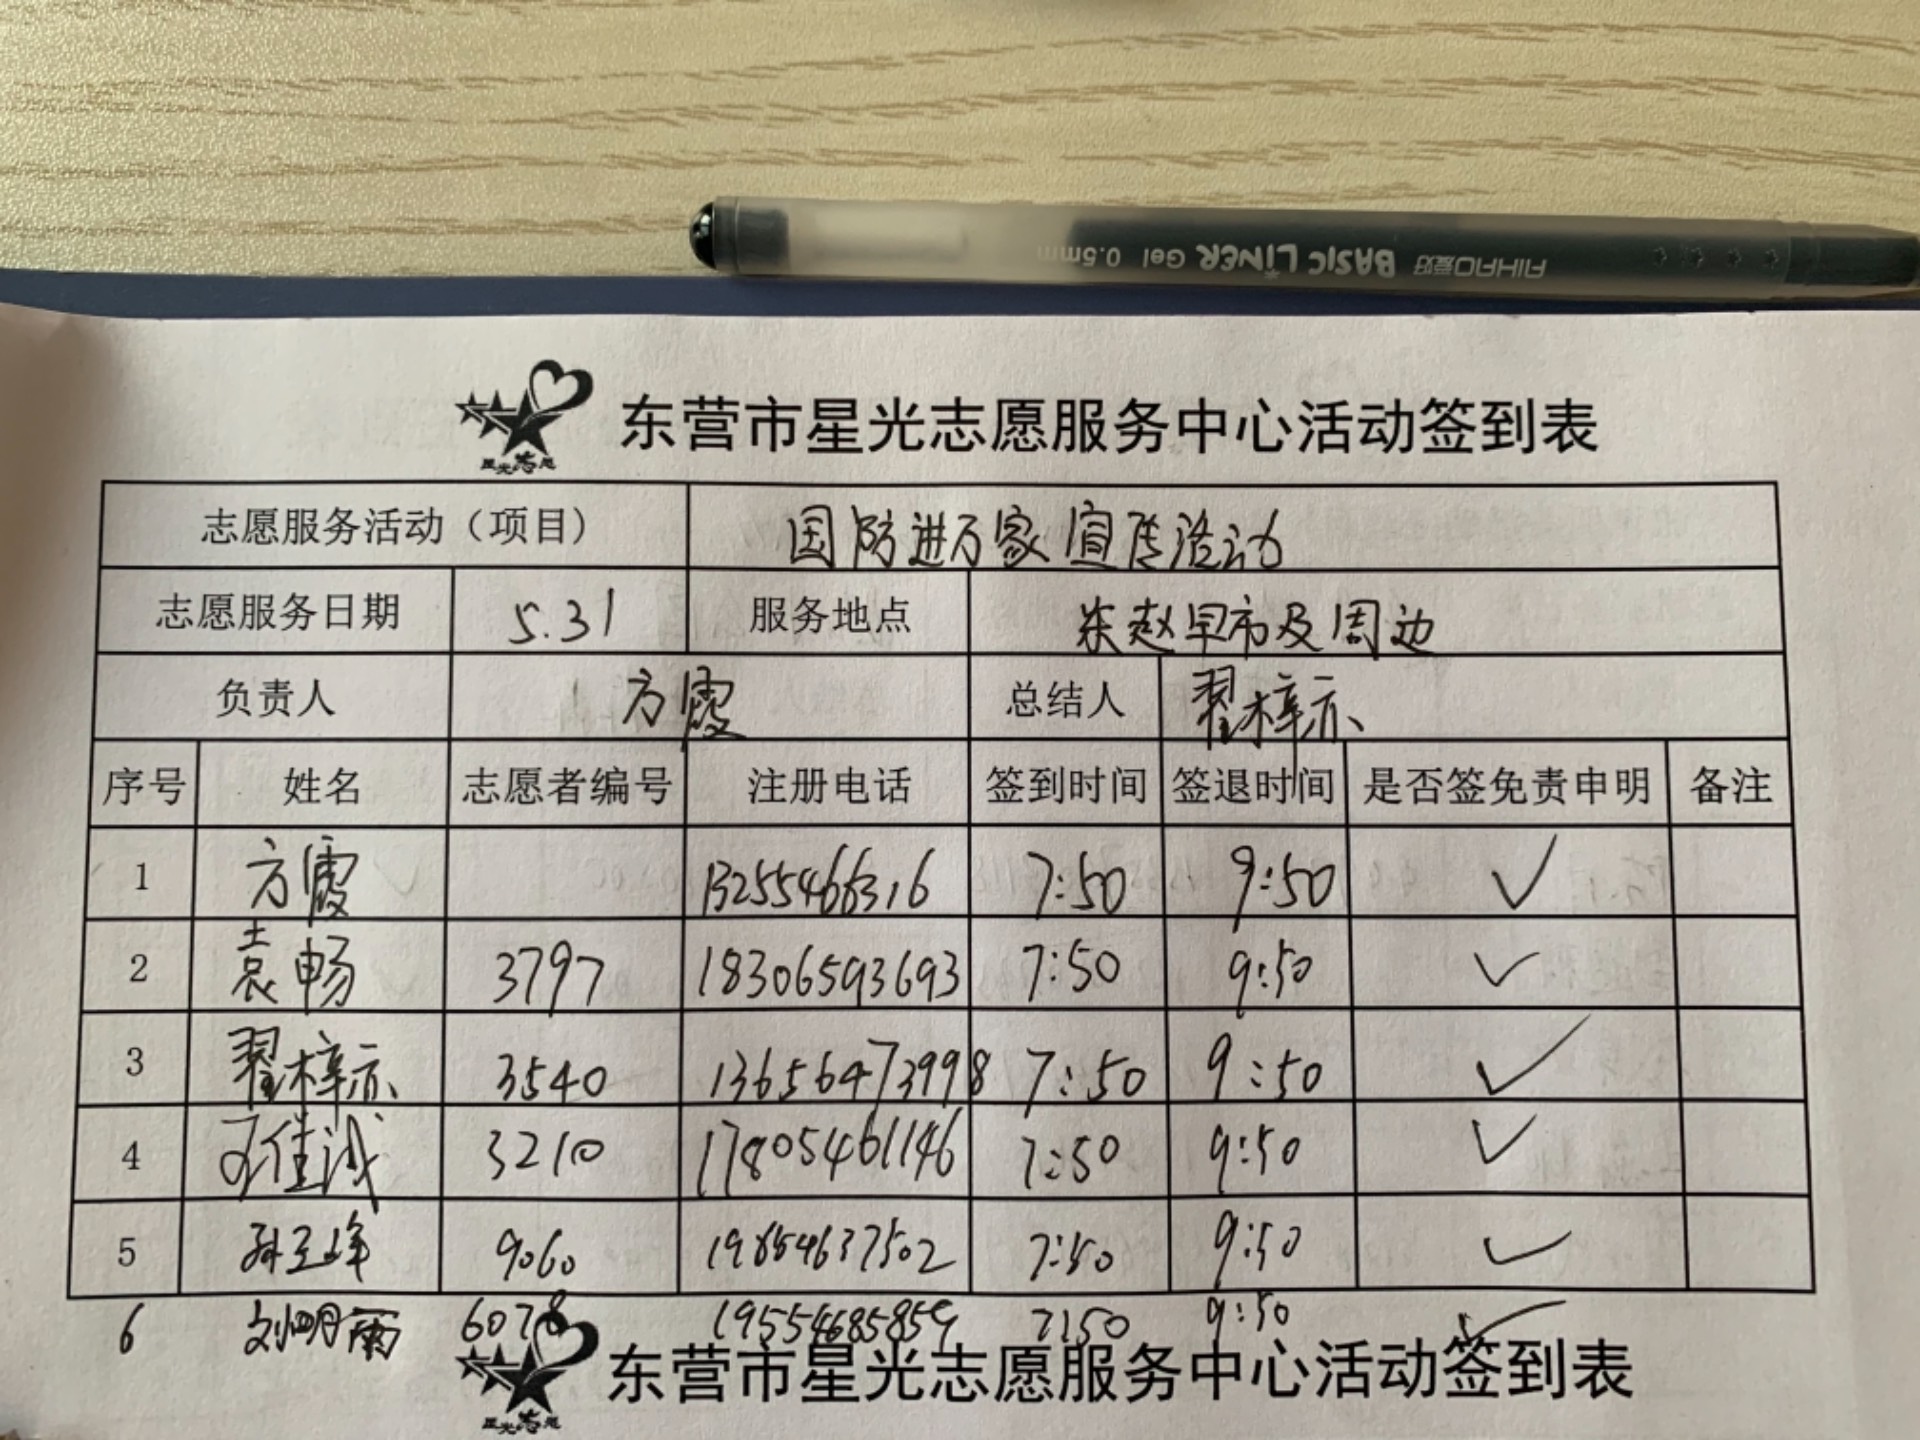 AIHAO爱好 BASIC LINER Gel 0.5mm
星光志愿
东营市星光志愿服务中心活动签到表
志愿服务活动（项目） 国防进万家宣传活动
志愿服务日期 5.31 服务地点 东赵早市及周边
负责人 方霞 总结人 翟梓亦
序号 姓名 志愿者编号 注册电话 签到时间 签退时间 是否签免责申明 备注
1 方霞 13255466316 7:50 9:50 ✓
2 袁畅 3797 18306593693 7:50 9:50 ✓
3 翟梓亦 3540 13656473998 7:50 9:50 ✓
4 佳诚 3210 17805461146 7:50 9:50 ✓
5 孙玉峰 9060 19854637502 7:50 9:50 ✓
6 刘明雨 6078 19554685859 7:50 9:50 ✓
星光志愿
东营市星光志愿服务中心活动签到表